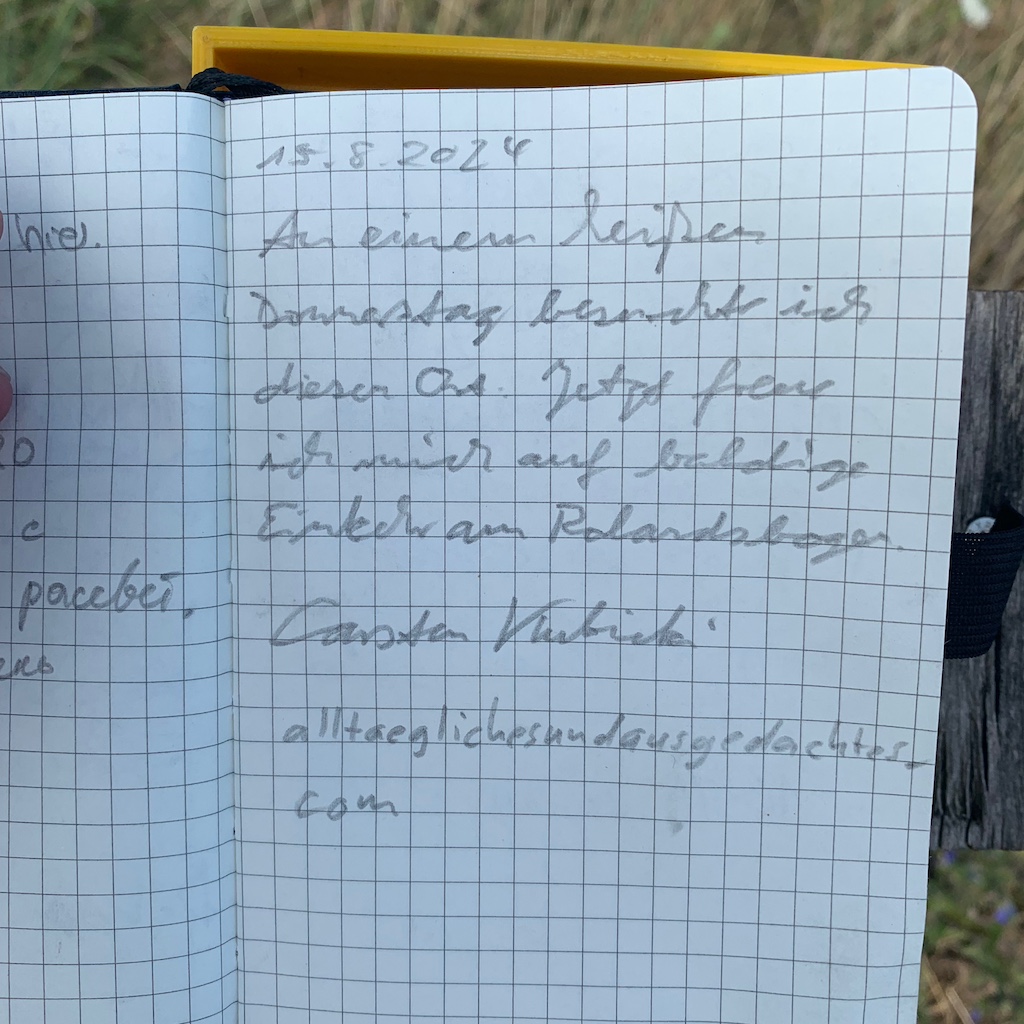 hier.
20
c
рассвет,
ень
15.8.2024
An einem heißen
Donnerstag besucht ich
diesen Ort. Jetzt freue
ich mich auf baldige
Einkehr am Rolandsbogen.
Carsten Kubicki
alltaeglichesundausgedachtes.
com